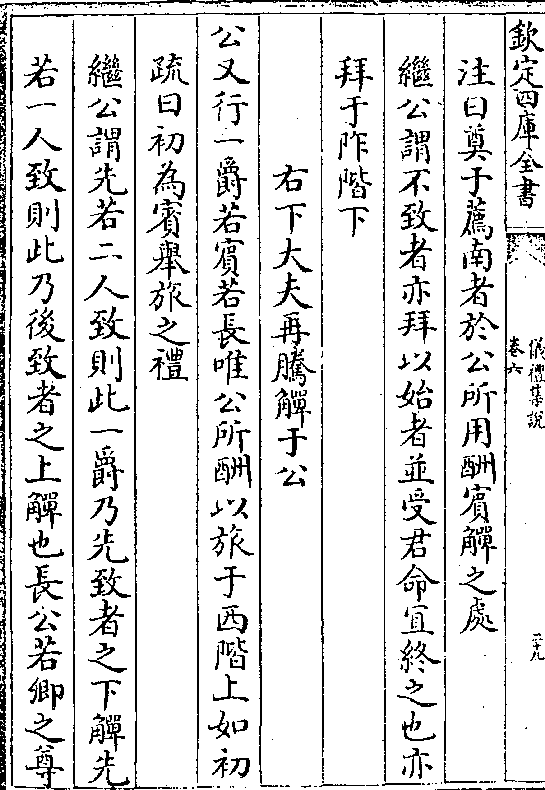 欽定四庫全書
儀禮集說
卷六
三十九
注曰奠于薦南者於公所用酬賓觶之處
繼公謂不致者亦拜以始者並受君命宜終之也亦
拜于阼階下
右下大夫再騰觶于公
公又行一爵若賓若長唯公所酬以旅于西階上如初
疏曰初為賓舉旅之禮
繼公謂先若二人致則此一爵乃先致者之下觶先
若一人致則此乃後致者之上觶也長公若卿之尊